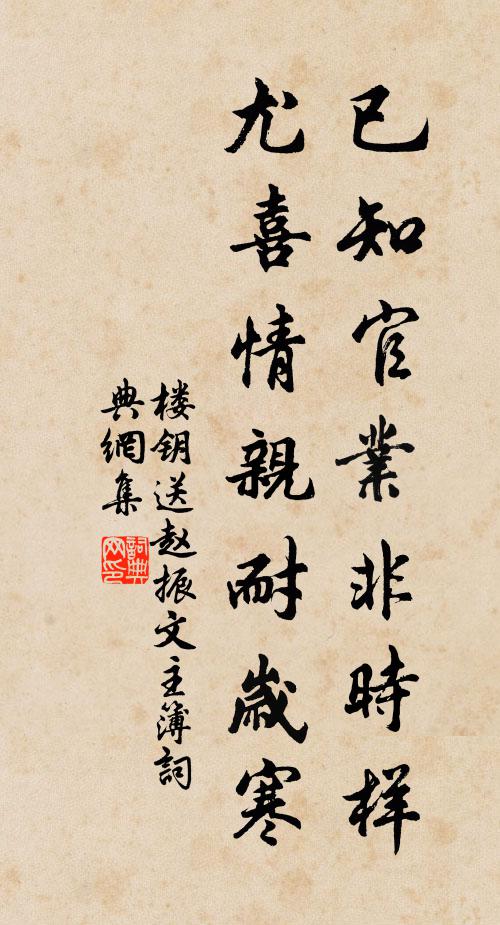 已知官業非時样
尤喜情親耐歲寒
楼钥送赵振文主簿詞
典網集
詞典
网印